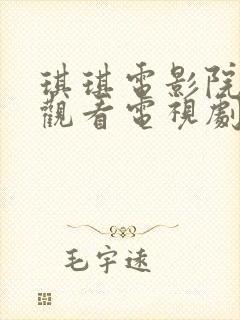 琪琪電影院
觀看電視劇
毛宇遠